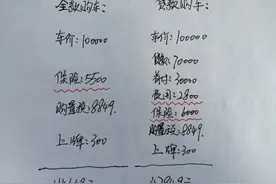 全款购车：
车价：100000
保险：5500
购置税：8849
上牌：300
贷款购车：
车价：100000
贷款：70000
首付：30000
费用：2800
保险：6000
购置税：8849
上牌：300